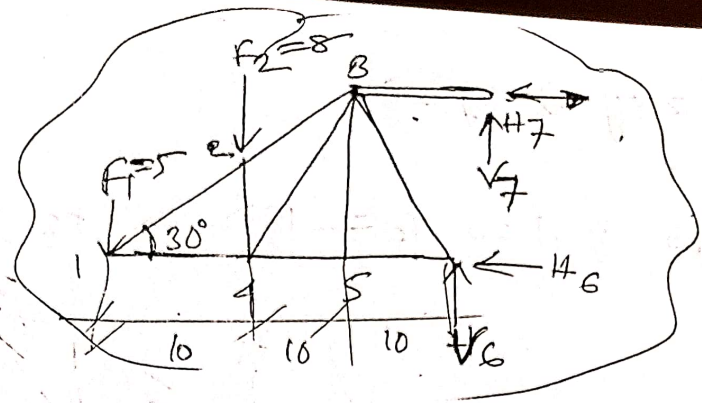 F2=8
B
H7
2
F1=5
V7
30°
1
4
5
H6
10
10
10
V6